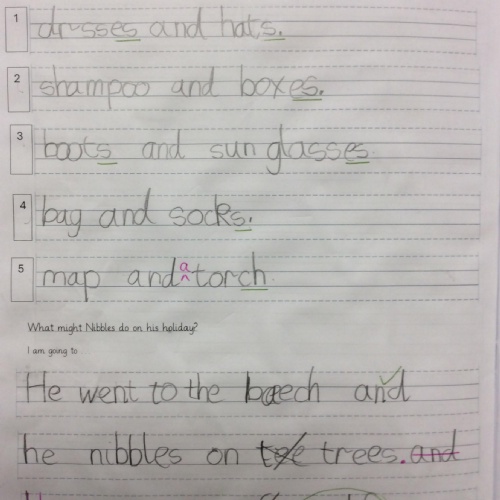 1 dresses and hats.
2 shampoo and boxes.
3 boots and sun glasses
4 bag and socks.
5 map and a torch
What might Nibbles do on his holiday?
I am going to
He went to the beech and
he nibbles on trees. and